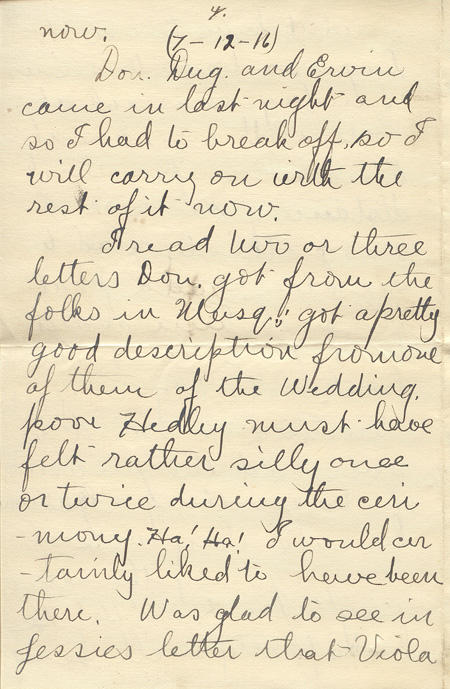 4.
now. (7-12-16)
Don. Dug. and Ervin
came in last night and
so I had to break off, so I
will carry on with the
rest of it now.
I read two or three
letters Don. got from the
folks in Musq.; got a pretty
good description from one
of them of the Wedding.
poor Hedley must have
felt rather silly once
or twice during the ceri
-mony. Ha! Ha! I would cer
-tainly liked to have been
there. Was glad to see in
Jessies letter that Viola